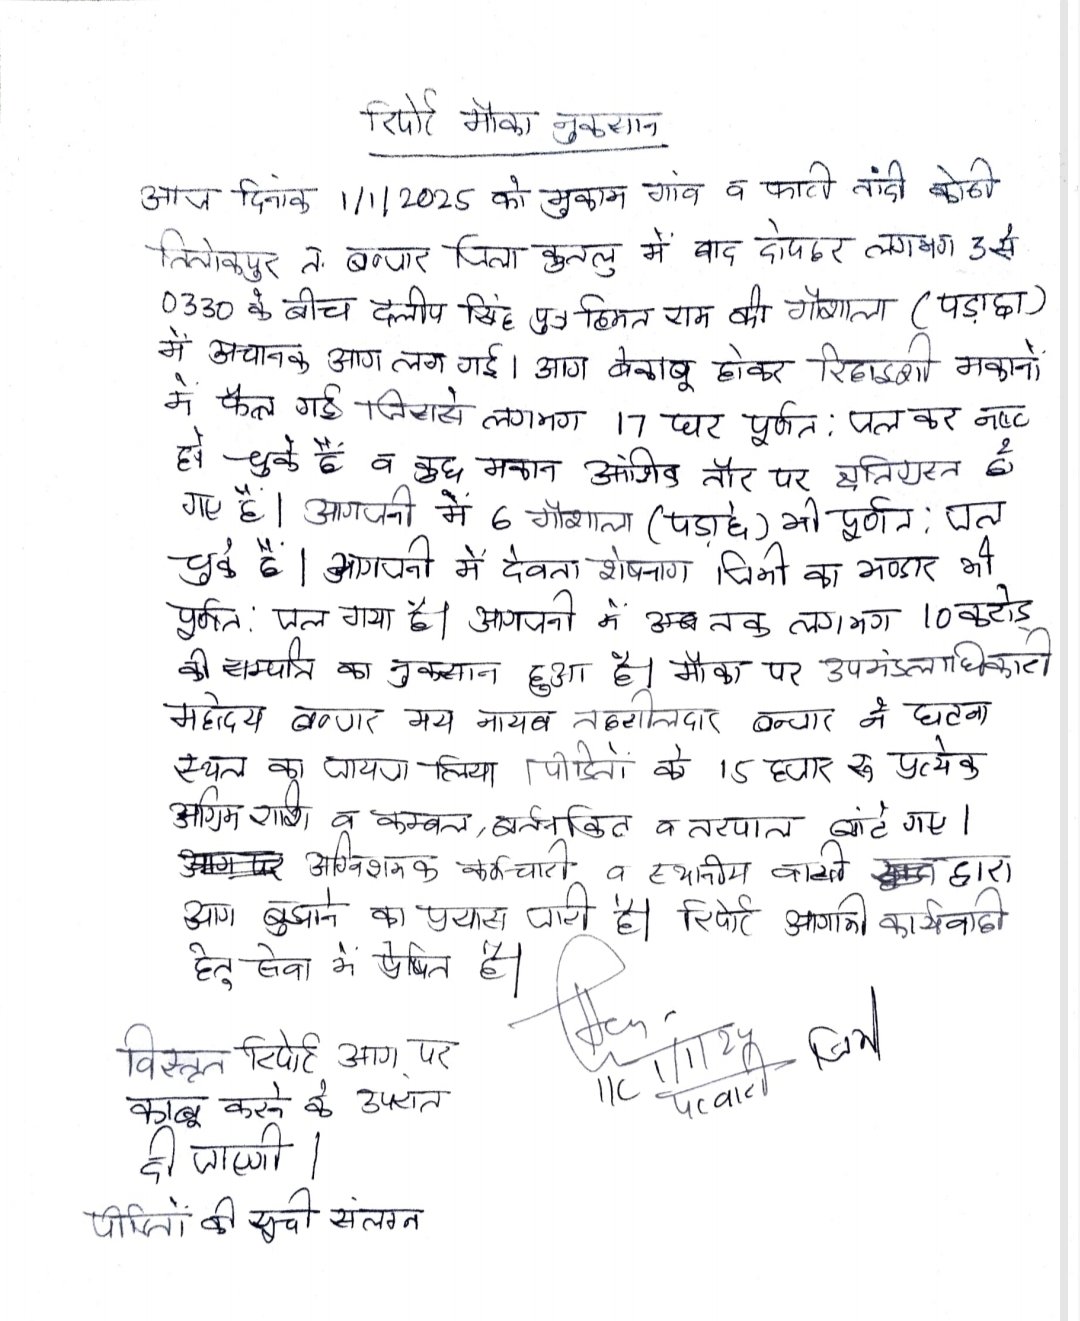 रिपोर्ट मौका नुकसान
आज दिनांक 1/1/2025 को मुकाम गांव व फाटी तांदी कोठी
तिलोकपुर त. बन्जार जिला कुल्लु में बाद दोपहर लगभग 3 से
0330 के बीच दलीप सिंह पुत्र हिमत राम की गौशाला (पड़ाछा)
में अचानक आग लग गई। आग बेकाबू होकर रिहाइशी मकानों
में फैल गई जिससे लगभग 17 घर पूर्णत: जल कर नष्ट
हो चुके हैं व कुछ मकान आंशिक तौर पर क्षतिग्रस्त हो
गए हैं। आगजनी में 6 गौशाला (पड़ाछे) भी पूर्णत: जल
चुके हैं। आगजनी में देवता शेषनाग जिभी का भण्डार भी
पूर्णत: जल गया है। आगजनी में अब तक लगभग 10 करोड़
की सम्पत्ति का नुकसान हुआ है। मौका पर उपमंडलाधिकारी
महोदय बन्जार मय नायब तहसीलदार बन्जार ने घटना
स्थल का जायजा लिया। पीडितों के 15 हजार रु प्रत्येक
अग्रिम राशि व कम्बल, बर्तन किट व तरपाल बांटे गए।
आग पर अग्निशमक कर्मचारी व स्थानीय वासी द्वारा
आग बुझाने का प्रयास जारी है। रिपोर्ट आगामी कार्यवाही
हेतू सेवा में प्रेषित है।
I/C 1/1/25 जिभी
पटवारी
विस्तृत रिपोर्ट आग पर
काबू करने के उपरांत
दी जाएगी।
पीडितों की सूची संलग्न